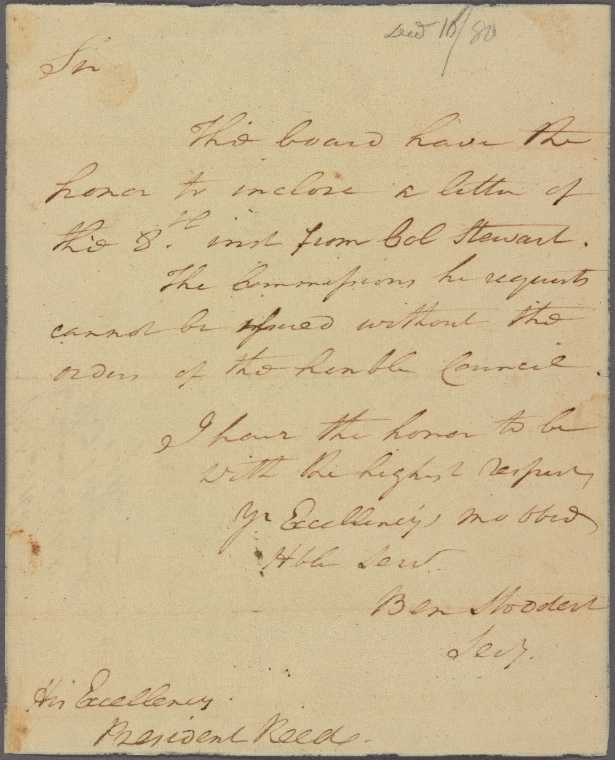 Decr 10/80
Sir
The board have the
honor to inclose a letter of
the 8.th inst from Col Stewart.
The Commissions he requests
cannot be issued without the
orders of the honble Council.
I have the honor to be
with the highest respect,
Yr Excellency's mo obed
Hble Serv.
Ben Stoddert
Secy.
His Excellency
President Reed.